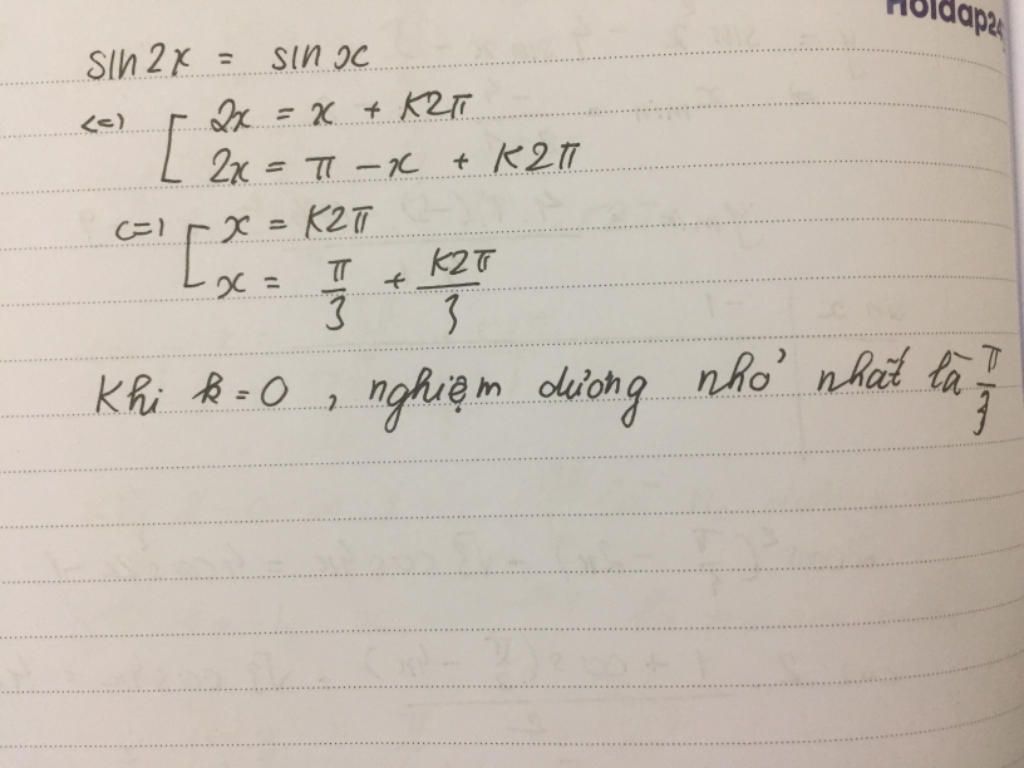 Hoidap24
sin 2x = sin x
<=> [ 2x = x + K2π
2x = π - x + K2π
<=> [ x = K2π
x = π/3 + K2π/3
Khi k = 0 , nghiệm dương nhỏ nhất là π/3